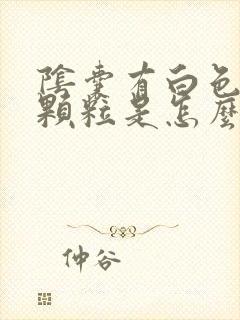 陰囊有白色
顆粒是怎麼
仲谷